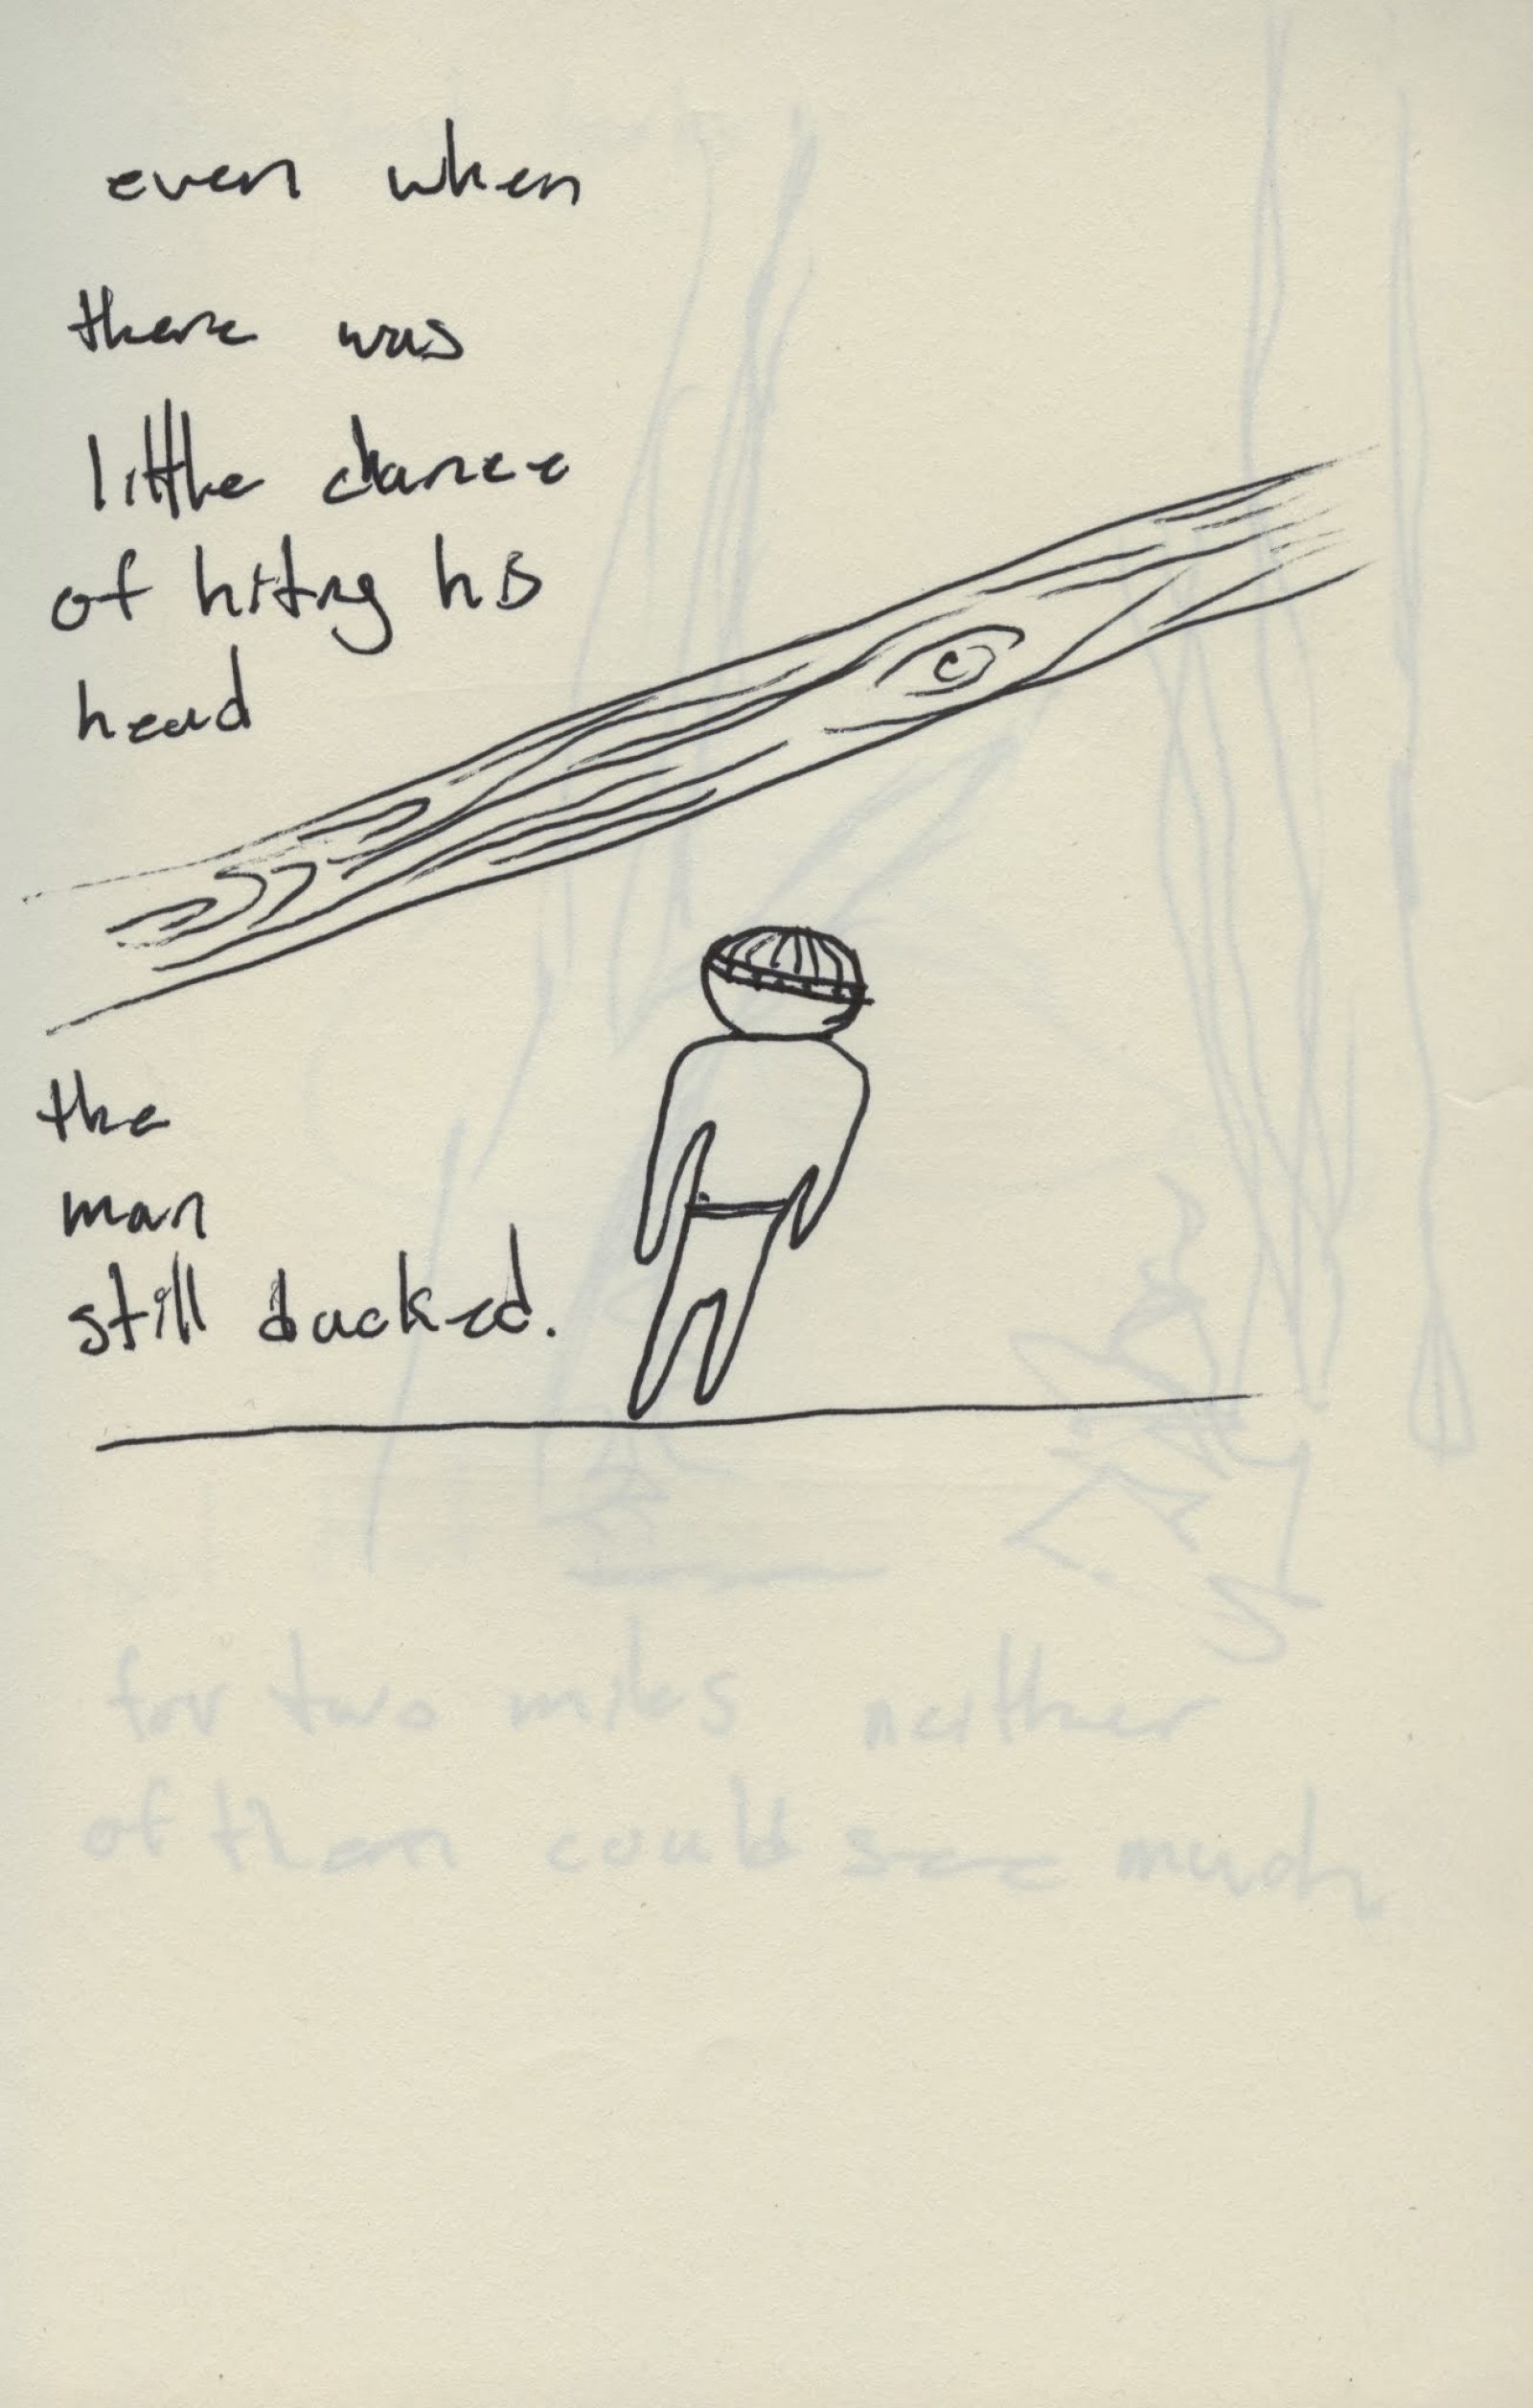 even when
there was
little chance
of hitting his
head
the
man
still ducked.
for two miles neither
of them could see much